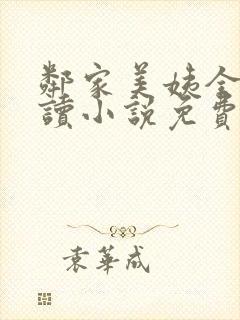 鄰家美姨全
讀小說免費
袁華成